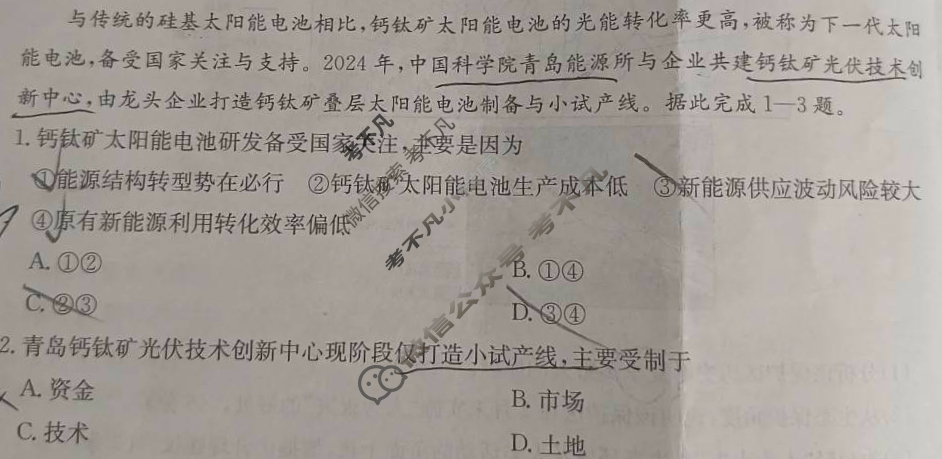 与传统的硅基太阳能电池相比,钙钛矿太阳能电池的光能转化率更高,被称为下一代太阳
能电池,备受国家关注与支持。2024年,中国科学院青岛能源所与企业共建钙钛矿光伏技术创
新中心,由龙头企业打造钙钛矿叠层太阳能电池制备与小试产线。据此完成1—3题。
1.钙钛矿太阳能电池研发备受国家关注,主要是因为
①能源结构转型势在必行 ②钙钛矿太阳能电池生产成本低 ③新能源供应波动风险较大
④原有新能源利用转化效率偏低
A.①② B.①④
C.②③ D.③④
2.青岛钙钛矿光伏技术创新中心现阶段仅打造小试产线,主要受制于
A.资金 B.市场
C.技术 D.土地
考不凡
微信搜索 考不凡
考不凡小
微信公众号 考不凡